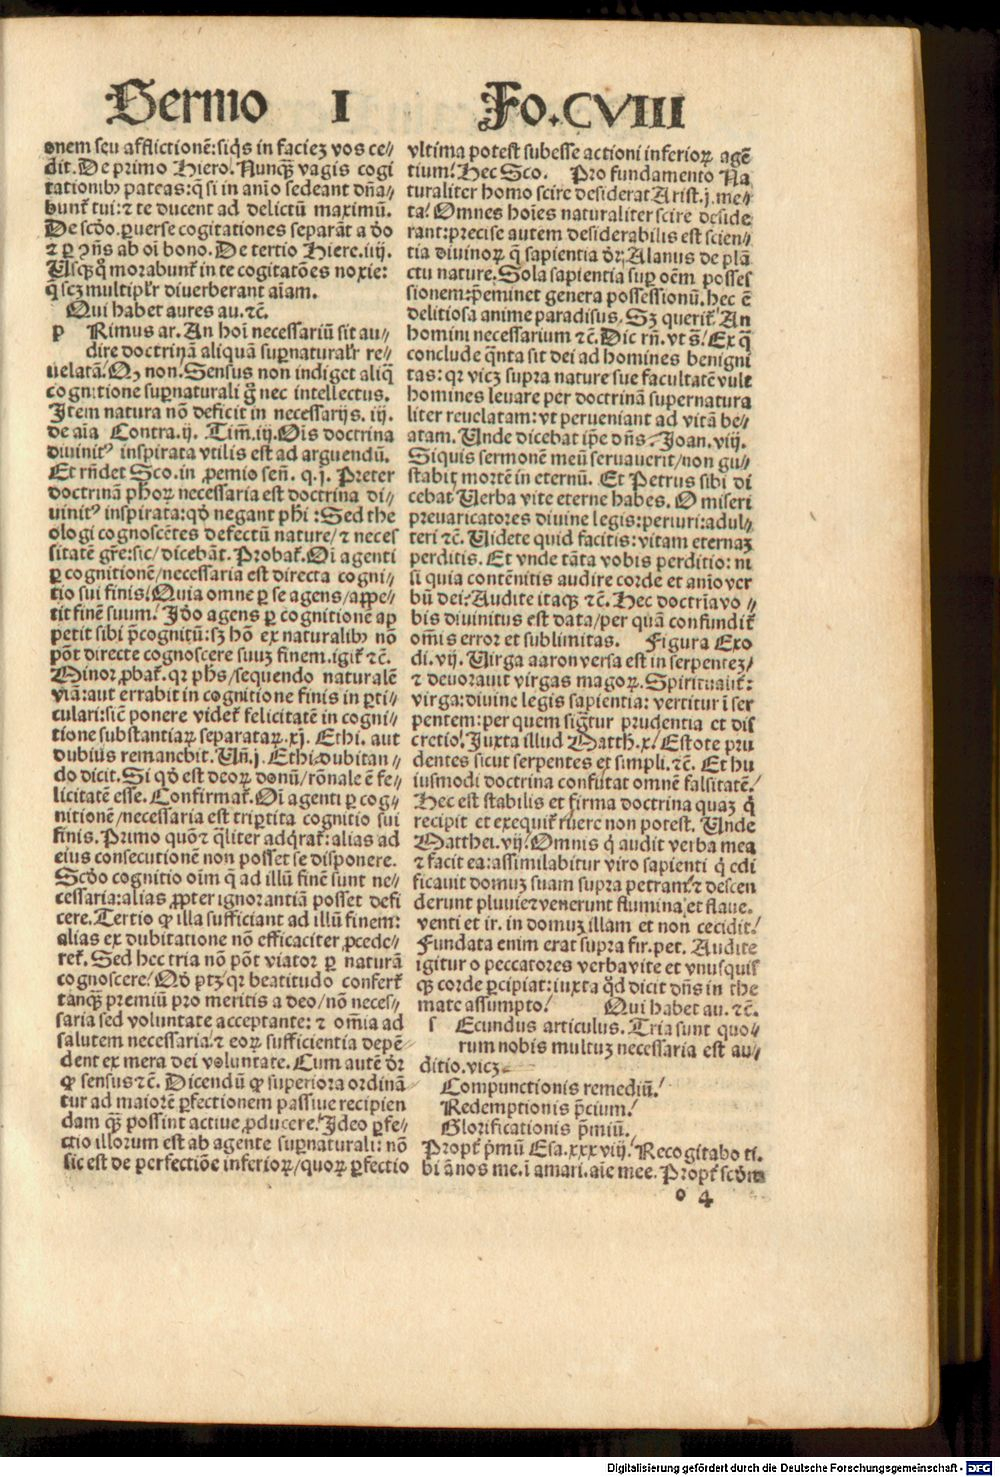 Sermo I Fo.CVIII
onem seu afflictionē: siq̄s in faciez vos ce⸗
dit. De primo Hiero. Nunqȝ vagis cogi
tationibꝰ pateas: q̄ si in aīo sedeant dn̄a⸗
bunt᷑ tui: ⁊ te ducent ad delictū maximū.
De scd̓o. ꝑuerse cogitationes separāt a d̓o
⁊ ꝑ ꝯn̄s ab oī bono. De tertio Hiere. iiij.
Usqȝq̊ morabunt᷑ in te cogitatōes noxie:
q̄ scȝ multipl'r diverberant aīam.
Qui habet aures au. ⁊c̄.
p Rimus ar. An hoī necessariū sit au⸗
dire doctrinā aliquā suꝑnatural'r re⸗
uelatā. Qꝫ non. Sensus non indiget aliq̄
cognitione suꝑnaturali g̊ nec intellectus.
Item natura nō deficit in necessarijs. iij.
de aīa Contra. ij. Tim̄. iij. Ois doctrina
diuinitꝰ inspirata vtilis est ad arguendū.
Et rn̄det Sco. in ꝓemio sen̄. q. j. Preter
doctrinā ph̄oꝝ necessaria est doctrina di⸗
uinitꝰ inspirata: qd̓ negant ph̄i: Sed the
ologi cognoscētes defectū nature/ ⁊ neces
sitatē gr̄e: sic/ dicebāt. Probat᷑. Oī agenti
ꝑ cognitionē/ necessaria est directa cogni⸗
tio sui finis. Quia omne ꝑ se agens/ appe⸗
tit finē suum. Id̓o agens ꝑ cognitionē ap
petit sibi p̄cognitū: sȝ hō ex naturalibꝰ nō
pōt directe cognoscere suuȝ finem. igit᷑ ⁊c̄.
Minor ꝓbat᷑. qr ph̄s/ sequendo naturalē
viā: aut errabit in cognitione finis in ꝑti⸗
culari: sic̄ ponere videt᷑ felicitatē in cogni⸗
tione substantiaꝝ separataꝝ. xj. Ethi. aut
dubius remanebit. Un̄. j. Ethi. dubitan⸗
do dicit. Si qd̓ est deoꝝ donū/ rōnale ē fe⸗
licitatē esse. Confirmat᷑. Oī agenti ꝑ cog⸗
nitionē/ necessaria est triꝑtita cognitio sui
finis. Primo quō ⁊ q̄liter adq̄rat᷑: alias ad
eius consecutionē non posset se disponere.
Scd̓o cognitio oīm q̄ ad illū finē sunt ne⸗
cessaria: alias ꝓpter ignorantiā posset defi
cere. Tertio ꝙ illa sufficiant ad illū finem:
alias ex dubitatione nō efficaciter ꝓcede⸗
ret᷑. Sed hec tria nō pōt viator ꝑ naturā
cognoscere. Qd̓ ptȝ/ qr beatitudo confert᷑
tanqȝ premiū pro meritis a deo/ nō neces⸗
saria sed voluntate acceptante: ⁊ om̄ia ad
salutem necessaria: ⁊ eoꝝ sufficientia depē⸗
dent ex mera dei voluntate. Cum autē d̓r
ꝙ sensus ⁊c̄. Dicendū ꝙ superiora ordinā
tur ad maiorē ꝑfectionem passiue recipien
dam qȝ possint actiue ꝓducere. Ideo ꝑfe⸗
ctio illorum est ab agente suꝑnaturali: nō
sic est de perfectiōe inferioꝝ/ quoꝝ ꝑfectio
vltima potest subesse actioni inferioꝝ agē
tium. Hec Sco. Pro fundamento Na
turaliter homo scire desiderat Arist. j. me⸗
ta. Omnes hoīes naturaliter scire deside
rant: precise autem desiderabilis est scien⸗
tia diuinoꝝ q̄ sapientia d̓r. Alanus de plā
ctu nature. Sola sapientia suꝑ oēm posses
sionem: p̄eminet genera possessionū. hec ē
delitiosa anime paradisus. Sȝ querit᷑ An
homini necessarium ⁊c̄. Dic rn̄. vt s̄. Ex q̄
conclude q̄nta sit dei ad homines benigni
tas: qr vicȝ supra nature sue facultatē vult
homines leuare per doctrinā supernatura
liter reuelatam: vt perueniant ad vitā be⸗
atam. Unde dicebat ip̄e dn̄s. Joan. viij.
Siquis sermonē meū seruauerit/ non gu⸗
stabit mortē in eternū. Et Petrus sibi di
cebat Uerba vite eterne habes. O miseri
preuaricatores diuine legis: periuri: adul⸗
teri ⁊c̄. Uidete quid facitis: vitam eternaȝ
perditis. Et vnde tāta vobis perditio: ni
si quia contēnitis audire corde et aīo ver
bū dei. Audite itaqȝ ⁊c̄. Hec doctrīa vo⸗
bis diuinitus est data/ per quā confundit᷑
om̄is error et sublimitas. Figura Exo
di. vij. Uirga aaron versa est in serpenteȝ/
⁊ deuorauit virgas magoꝝ. Spiritualit᷑:
virga: diuine legis sapientia: vertitur ī ser
pentem: per quem sig̊tur prudentia et dis
cretio. Juxta illud Matth. x. Estote pru
dentes sicut serpentes et simpli. ⁊c̄. Et hu
iusmodi doctrina confutat omnē falsitatē.
Hec est stabilis et firma doctrina quaȝ q̄
recipit et exequit᷑ ruere non potest. Unde
Matthei. vij. Omnis q̄ audit verba mea
⁊ facit ea: assimilabitur viro sapienti q̄ edi
ficauit domuȝ suam supra petram: ⁊ descen
derunt pluuie ⁊ venerunt flumina/ et flaue.
venti et ir. in domuȝ illam et non cecidit.
Fundata enim erat supra fir. pet. Audite
igitur o peccatores verba vite et vnusquis
qȝ corde ꝑcipiat: iuxta qd̓ dicit dn̄s in the
mate assumpto. Qui habet au. ⁊c̄.
s Ecundus articulus. Tria sunt quo⸗
rum nobis multuȝ necessaria est au⸗
ditio. vicȝ
Compunctionis remediū.
Redemptionis p̄cium.
Glorificationis p̄miū.
Propt᷑ p̄mū Esa. xxxviij. Recogitabo ti.
bi ānos me. ī amari. aīe mee. Propt᷑ scd̓m
o 4
Digitalisierung gefördert durch die Deutsche Forschungsgemeinschaft - DFG